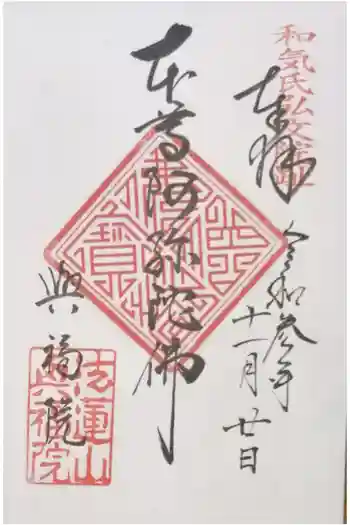 和気氏弘文院址
奉拝
令和参年
十一月廿日
本尊阿弥陀佛
興福院
法蓮山
興福院